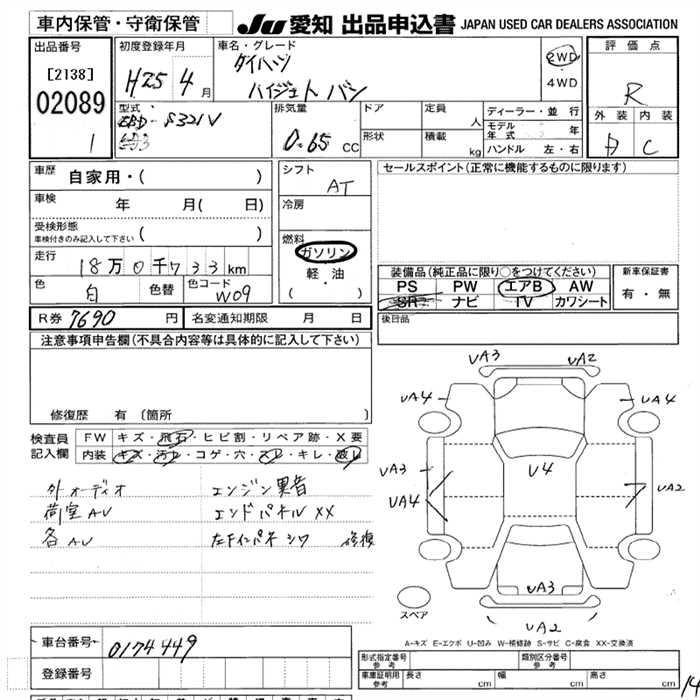 車内保管・守衛保管 JU 愛知 出品申込書 JAPAN USED CAR DEALERS ASSOCIATION
出品番号 初度登録年月 車名・グレード 評価点
[2138] H25 4月 ダイハツ 2WD
02089 ハイジェット バン 4WD R
1 型式 EBD- S321V 排気量 0.65 cc ドア 定員 人 ディーラー・並行 外装 内装
形状 積載 kg モデル年式 年 C
ハンドル 左・右
車歴 自家用・( ) シフト AT セールスポイント(正常に機能するものに限ります)
車検 年 月( 日) 冷房
受検形態
車検付きのみ記入して下さい ( )
走行 18万0千733km 燃料 ガソリン 軽・油 ( )
装備品(純正品に限り○をつけてください) 新車保証書
色 白 色替 色コード W09 PS PW エアB AW 有・無
SR ナビ TV カワシート
R券 7690 円 名変通知期限 月 日 後日品
注意事項申告欄(不具合内容等は具体的に記入して下さい)
修復歴 有 (箇所 )
検査員記入欄 FW キズ・飛石・ヒビ割・リペア跡・X要
内装 キズ・汚れ・コゲ・穴・スレ・キレ・破レ
外オーディオ エンジン異音
荷室AU エンドパネルXX
各AU 左Fインパネ シワ 修復
UA3 UA2
UA4 UA4
UA3 U4 UA2
UA4
UA3
スペア UA2
A-キズ E-エクボ U-凹み W-補修跡 S-サビ C-腐食 XX-交換済
車台番号 0174449
登録番号
形式指定番号 参考 類別区分番号 参考
車庫証明用 参考 長さ cm 幅 cm 高さ cm
14